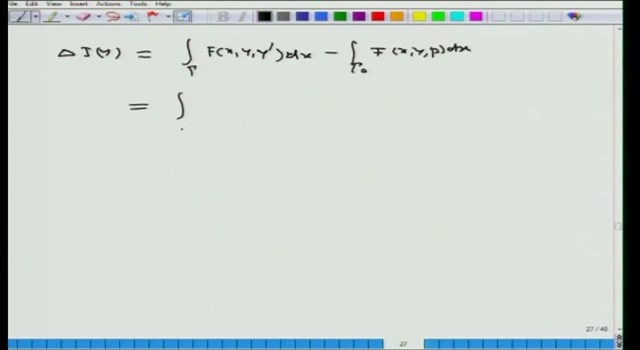 File Edit View Insert Actions Tools Help
Δ J(y) = ∫_Γ F(x, y, y')dx − ∫_Γ₀ F(x, y, p)dx
= ∫
27 / 40
27